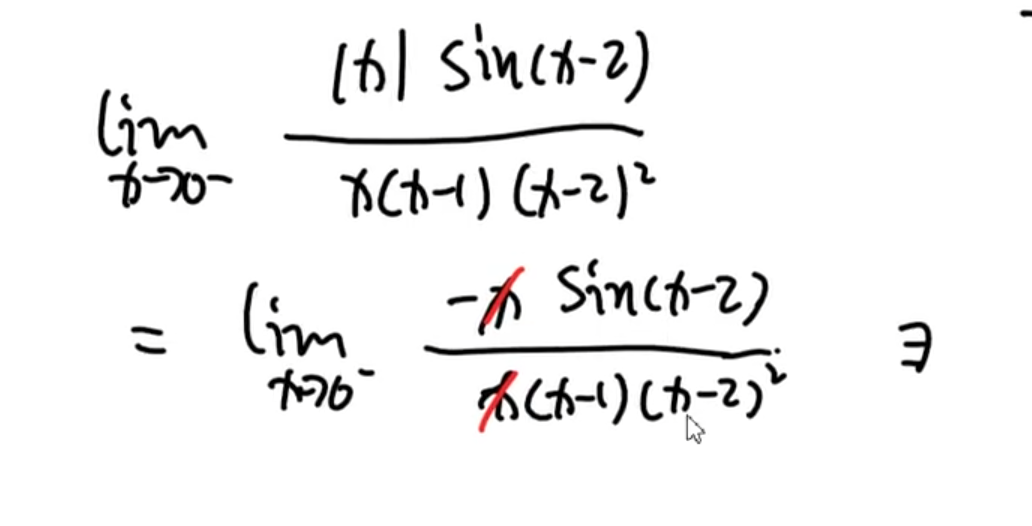 lim x→0⁻ |x| sin(x-2) / x(x-1)(x-2)²
= lim x→0⁻ -x sin(x-2) / x(x-1)(x-2)² ∃